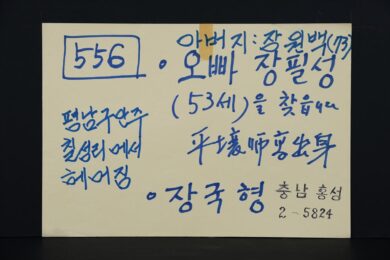 556
아버지: 장원백(73)
• 오빠 장필성
(53세)을 찾읍니다
平壤師享出身
평남구안주
칠성리에서
헤어짐
• 장국형
충남 홍성
2-5824